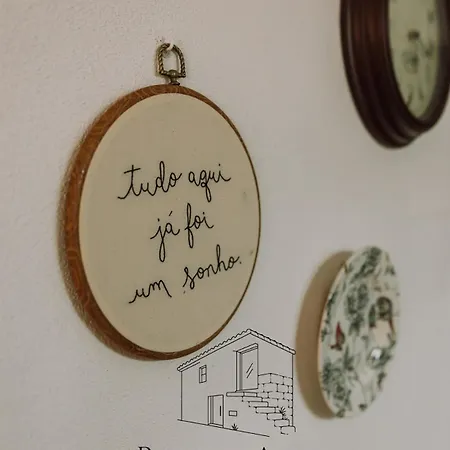 tudo aqui
já foi
um sonho.